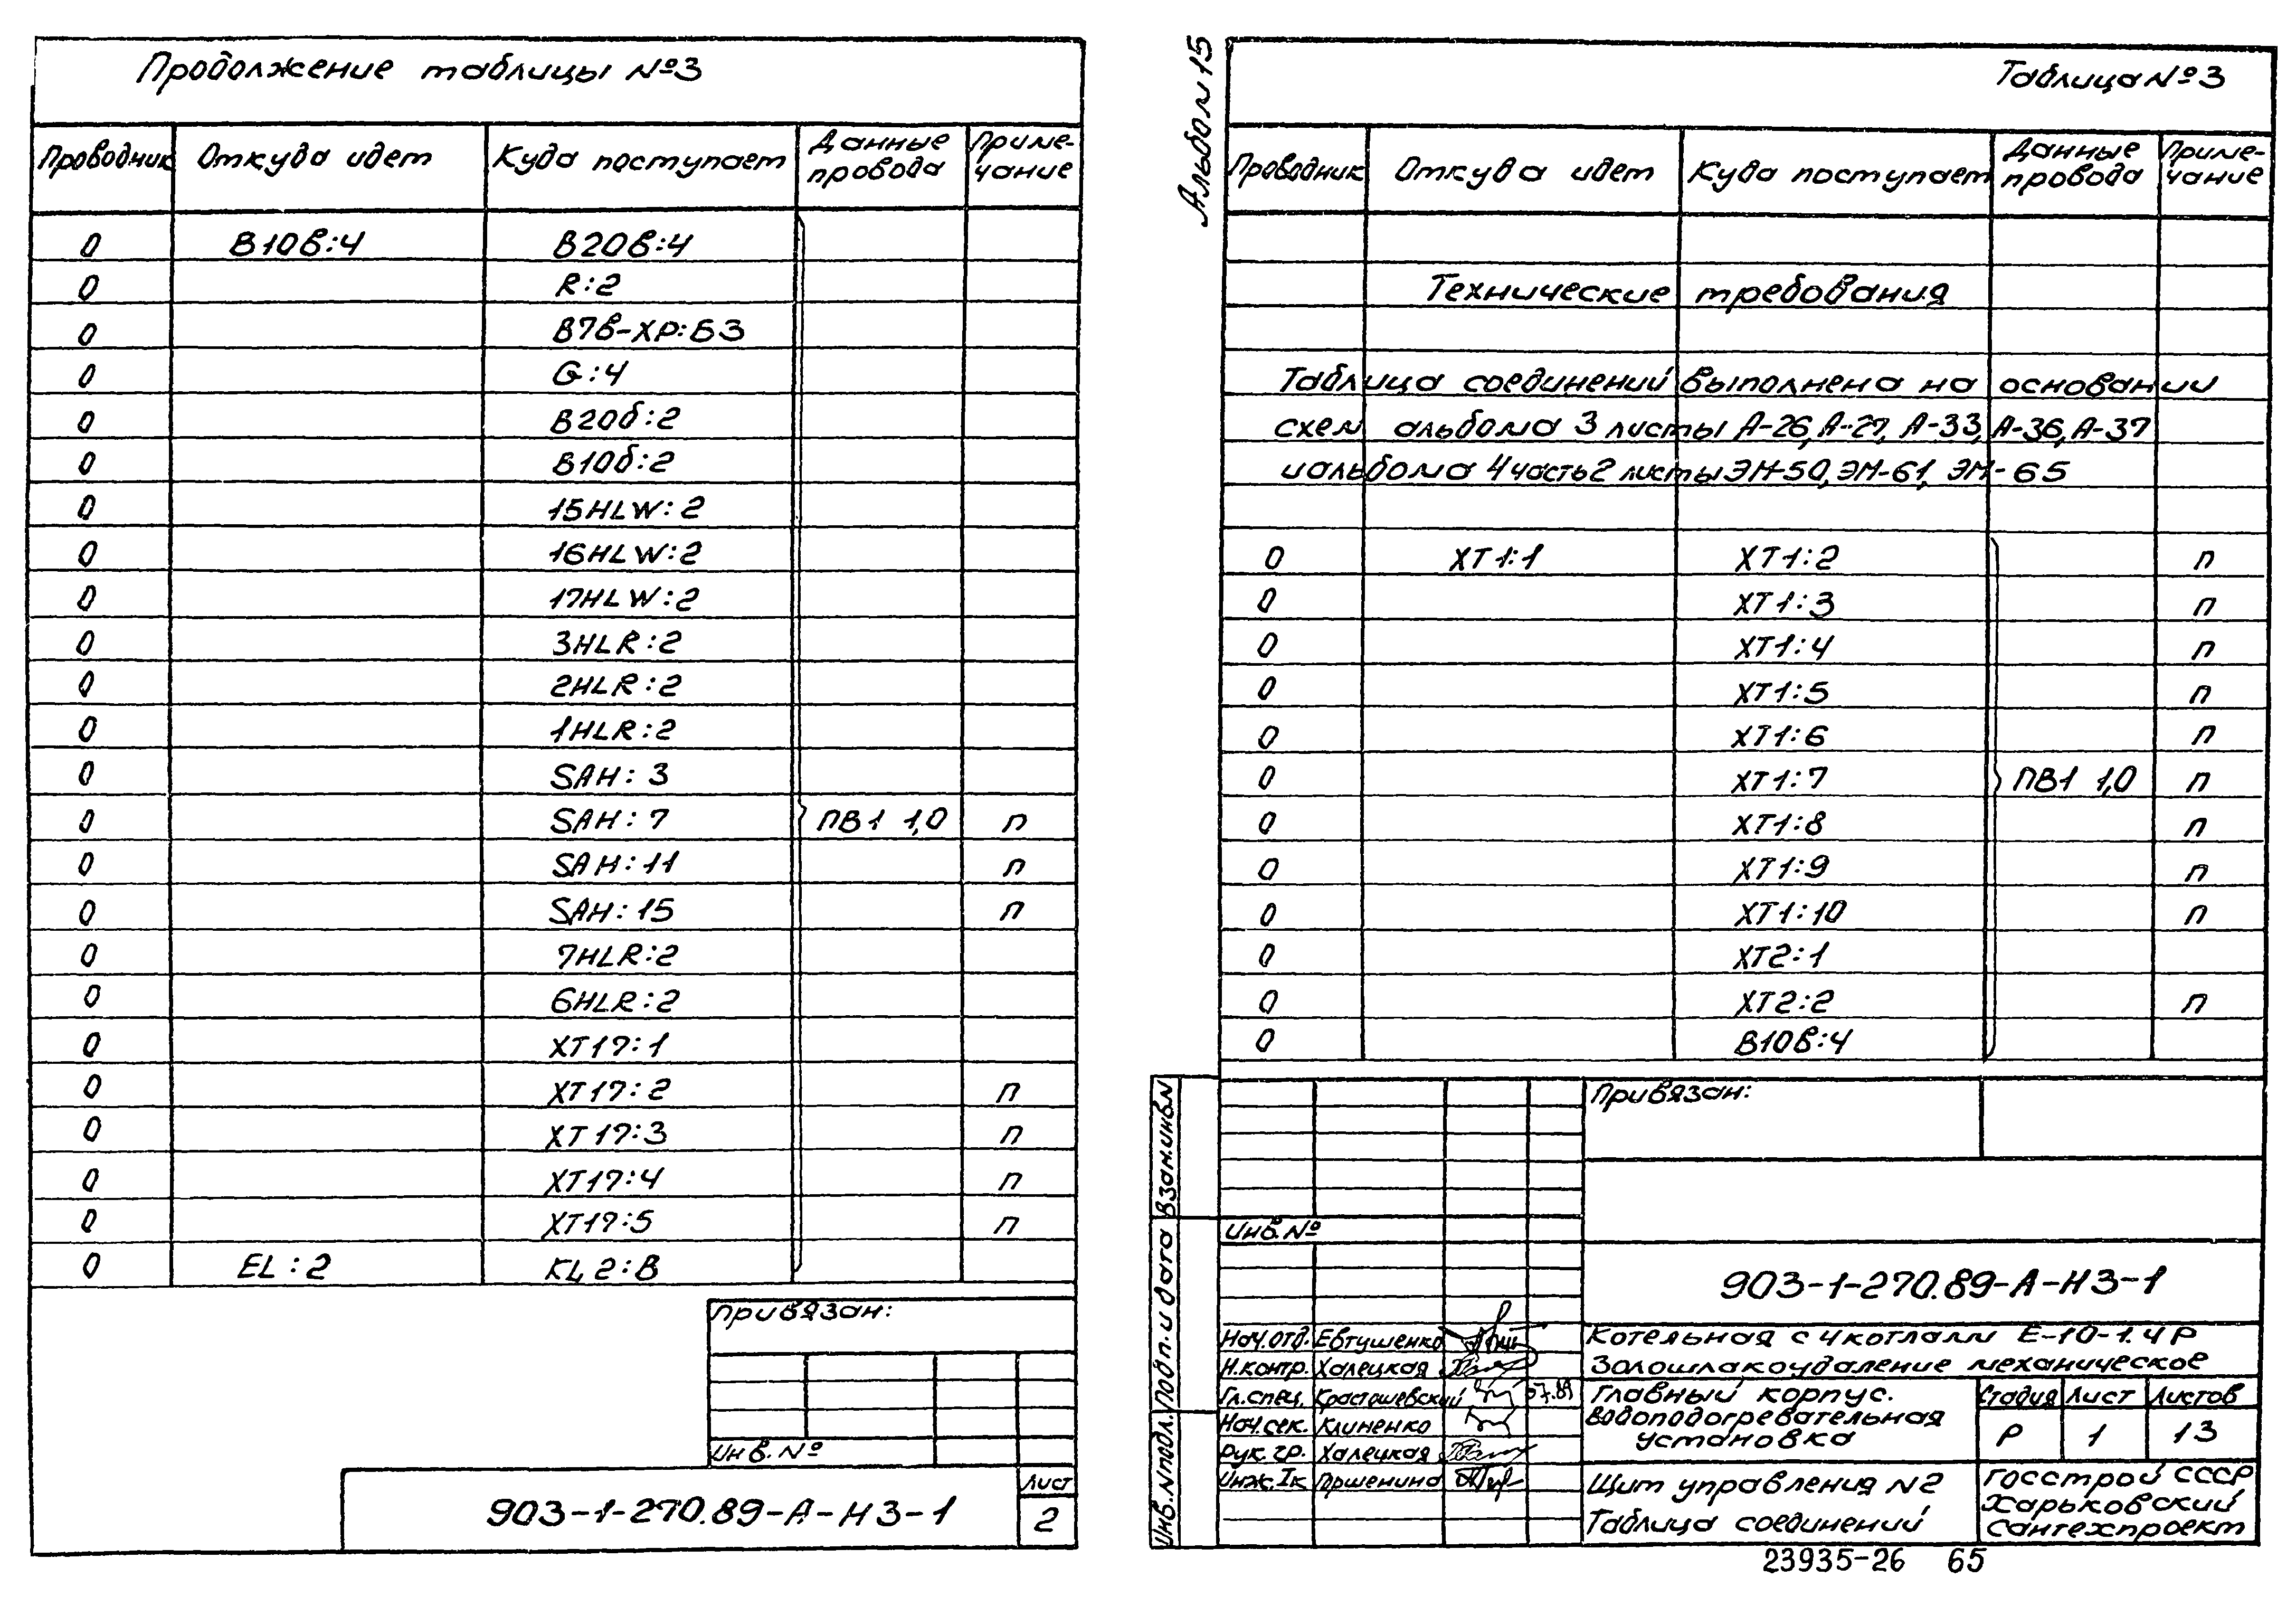 Продолжение таблицы №3
Проводник Откуда идет Куда поступает Данные провода Приме-чание
0 В10в:4 В20в:4
0 R:2
0 В7в-ХР:Б3
0 G:4
0 В20б:2
0 В10б:2
0 15HLW:2
0 16HLW:2
0 17HLW:2
0 3HLR:2
0 2HLR:2
0 1HLR:2
0 SAH:3
0 SAH:7 ПВ1 1,0 п
0 SAH:11 п
0 SAH:15 п
0 7HLR:2
0 6HLR:2
0 XT17:1
0 XT17:2 п
0 XT17:3 п
0 XT17:4 п
0 XT17:5 п
0 EL:2 KL2:B
Привязан:
Инв.№
903-1-270.89-А-НЗ-1
Лист
2
Альбом 15
Таблица №3
Проводник Откуда идет Куда поступает Данные провода Приме-чание
Технические требования
Таблица соединений выполнена на основании
схем альбома 3 листы А-26, А-27, А-33, А-36, А-37
и альбома 4 часть 2 листы ЭМ-50, ЭМ-61, ЭМ-65
0 XT1:1 XT1:2 п
0 XT1:3 п
0 XT1:4 п
0 XT1:5 п
0 XT1:6 п
0 XT1:7 ПВ1 1,0 п
0 XT1:8 п
0 XT1:9 п
0 XT1:10 п
0 XT2:1
0 XT2:2 п
0 В10в:4
Привязан:
Инв.№
Взам.инв.N
Подп. и дата
Инв.Nподл.
903-1-270.89-А-НЗ-1
Нач.отд. Евтушенко
Н.контр. Халецкая
Гл.спец. Красташевский 07.89
Нач.сек. Клиненко
Рук.гр. Халецкая
Инж.Iк Пршенина
Котельная с 4 котлами Е-10-1.4Р
Золошлакоудаление механическое
Главный корпус.
Водоподогревательная
установка
Стадия Лист Листов
Р 1 13
Щит управления N2
Таблица соединений
Госстрой СССР
Харьковский
Сантехпроект
23935-26 65